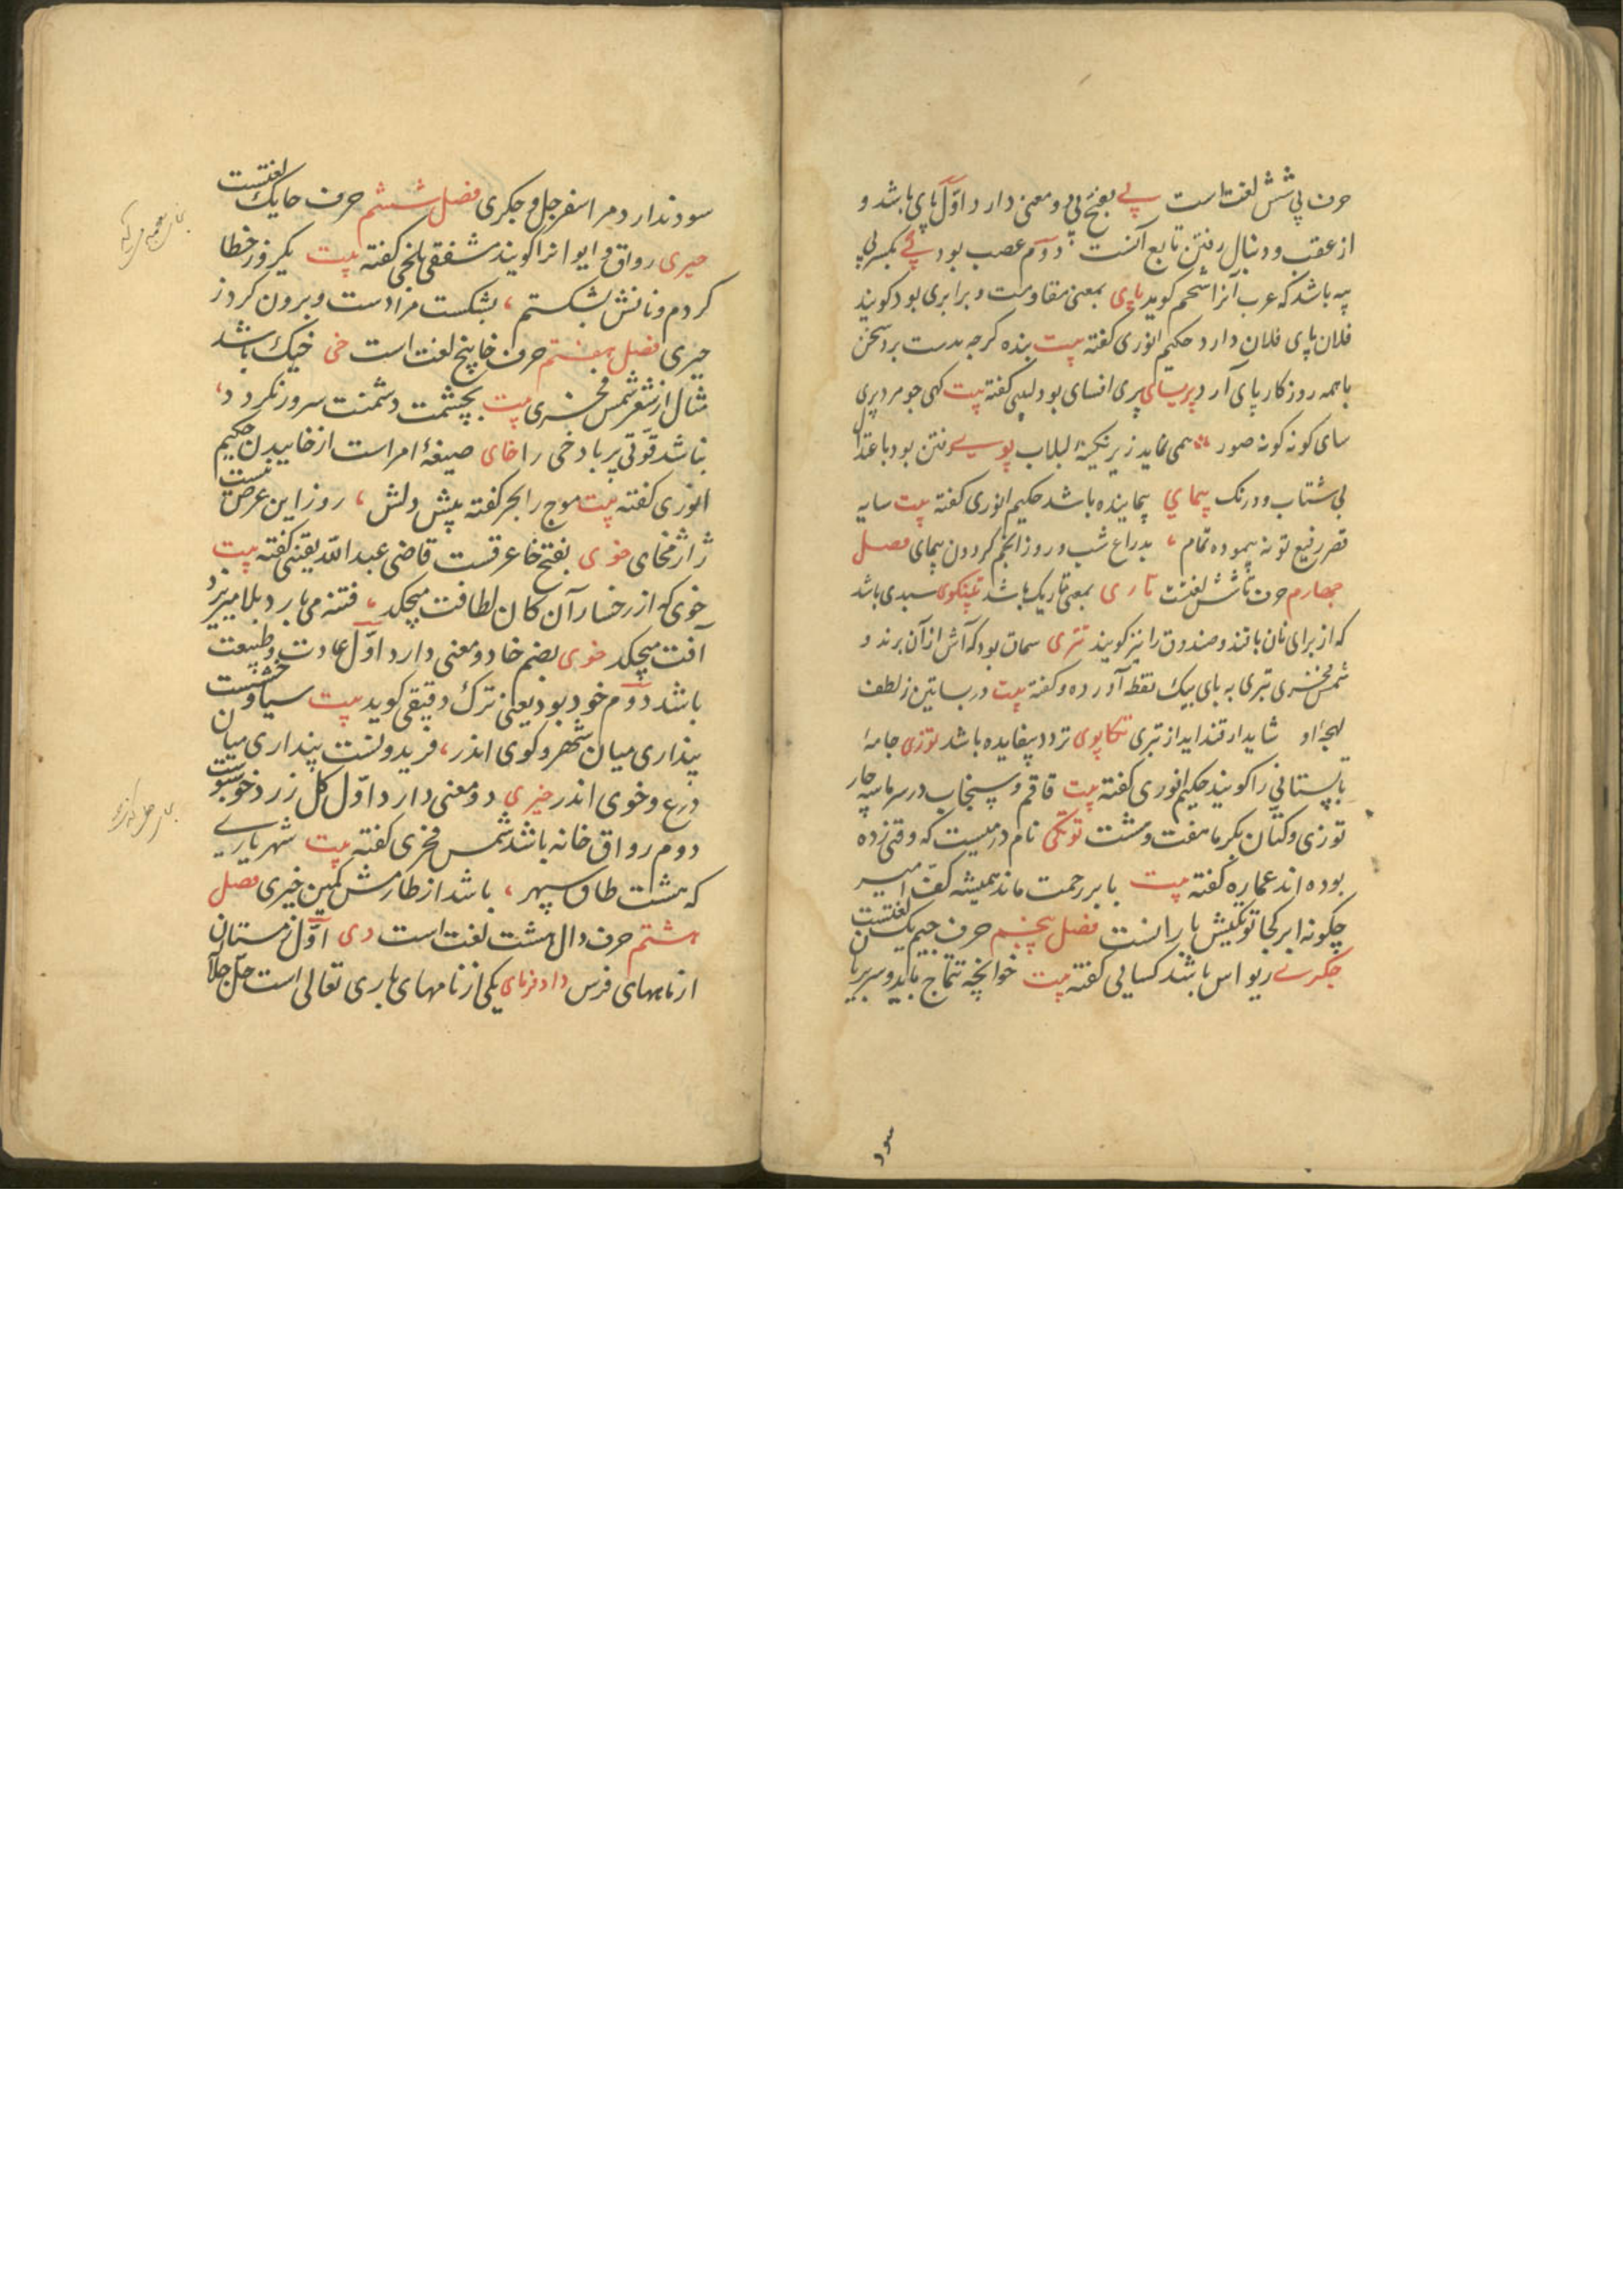 حرف پی شش لغت است پے بفتح پی دو معنی دارد اوّل پای باشد و
از عقب و دنبال رفتن تابع آنست دوّم عصب بود پے بکسر پی
پیه باشد که عرب آنرا شحم کوید پای بمعنی مقاومت و برابری بود کویند
فلان پای فلان دارد حکیم انوری کفته بیت بنده کرچه بدست برد سخن
با همه روزکار پای آرد پریسای پری افسای بود لبیبی کفته بیت کهی جو مرد پری
سای کونه کونه صور همی نماید زیر نکینهٔ لبلاب پوی رفتن بود باعتدال
بی شتاب و درنک پیمای پیماینده باشد حکیم انوری کفته بیت سایه
قصر رفیع تو نه پیموده تمام بدراع شب و روز انجم کردون پیمای فصل
چهارم حرف تا شش لغتست تاری بمعنی تاریک باشد تبنکوی سبدی باشد
که از برای نان بافند و صندوق را نیز کویند تتری سماق بود که آش از آن برند و
شمس فخری تبری به بای بیک نقطه آورده و کفته بیت در بساتین ز لطف
لهجهٔ او شاید ار قند اید از تبری تکاپوی تردد بیفایده باشد توزی جامهٔ
تابستانی را کویند حکیم انوری کفته بیت قاقم و سنجاب در سرما سه چار
توزی و کتان بکرما هفت و هشت توتکی نام درمیست که وقتی زده
بوده اند عماره کفته بیت بابر رحمت ماند همیشه کف امیر
چکونه ابر کجا توتکیش بارانست فصل پنجم حرف جیم یک لغتست
جکرے ریواس باشد کسایی کفته بیت خوانچه تتماج باید و سر بریان
سود
سود ندارد مرا سفرجل و جکری فصل ششم حرف حا یک لغتست
حیری رواق و ایوانرا کویند مشفقی بلخی کفته بیت یکروز خطا
کردم و نانش بشکستم بشکست مرا دست و برون کرد ز
حیری فصل هفتم حرف خا پنج لغت است خی خیک باشد
مثال از شعر شمس فخری بیت بچشمت دشمنت سرور نکردد
نباشد قوّتی پر باد خی را خای صیغهٔ امر است از خاییدن حکیم
انوری کفته بیت موج را بحر کفته پیش دلش روز این عرض نیست
ژاژ مخای خوی بفتح خا عرقست قاضی عبد الله یقینی کفته بیت
خوی که از رخسار آن کان لطافت میچکد فتنه می بارد بلا میریزد
آفت میچکد خوی بضم خا دو معنی دارد اوّل عادت و طبیعت
باشد دوّم خود بود یعنی ترک دقیقی کوید بیت سیاوخشست
پنداری میان شهر و کوی اندر فریدونست پنداری میان
درع و خوی اندر خیری دو معنی دارد اوّل کل زرد خوشبوست
دوم رواق خانه باشد شمس فخری کفته بیت شهریارے
که هشت طاق سپهر باشد از طارمش کمین خیری فصل
هشتم حرف دال هشت لغت است دی اوّل زمستان
از ماههای فرس دادفرمای یکی از نامهای باری تعالی است جلّ جلاله